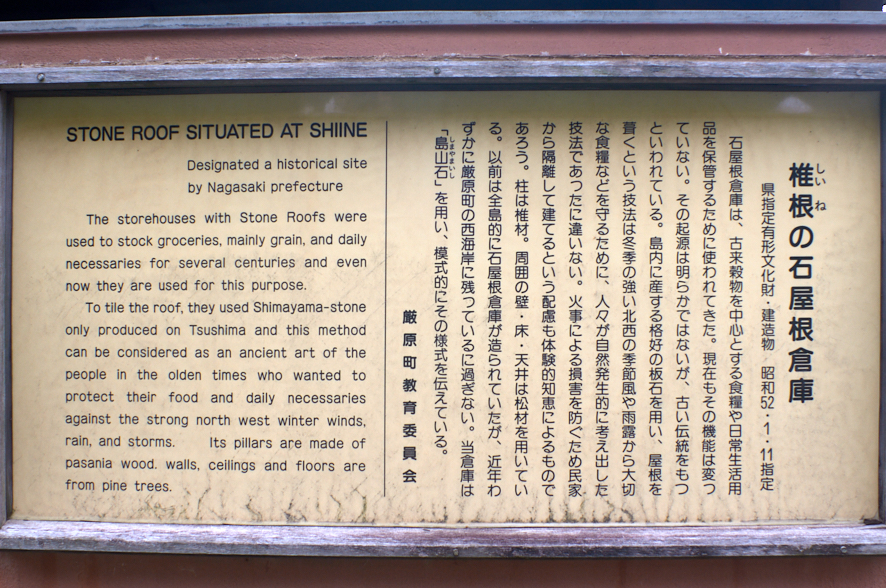 STONE ROOF SITUATED AT SHIINE
Designated a historical site
by Nagasaki prefecture
The storehouses with Stone Roofs were
used to stock groceries, mainly grain, and daily
necessaries for several centuries and even
now they are used for this purpose.
To tile the roof, they used Shimayama-stone
only produced on Tsushima and this method
can be considered as an ancient art of the
people in the olden times who wanted to
protect their food and daily necessaries
against the strong north west winter winds,
rain, and storms. Its pillars are made of
pasania wood. walls, ceilings and floors are
from pine trees.
しいね
椎根の石屋根倉庫
県指定有形文化財・建造物 昭和52・1・11指定
石屋根倉庫は、古来穀物を中心とする食糧や日常生活用
品を保管するために使われてきた。現在もその機能は変つ
ていない。その起源は明らかではないが、古い伝統をもつ
といわれている。島内に産する格好の板石を用い、屋根を
葺くという技法は冬季の強い北西の季節風や雨露から大切
な食糧などを守るために、人々が自然発生的に考え出した
技法であつたに違いない。火事による損害を防ぐため民家
から隔離して建てるという配慮も体験的知恵によるもので
あろう。柱は椎材。周囲の壁・床・天井は松材を用いてい
る。以前は全島的に石屋根倉庫が造られていたが、近年わ
ずかに厳原町の西海岸に残つているに過ぎない。当倉庫は
しまやまいし
「島山石」を用い、模式的にその様式を伝えている。
厳原町教育委員会